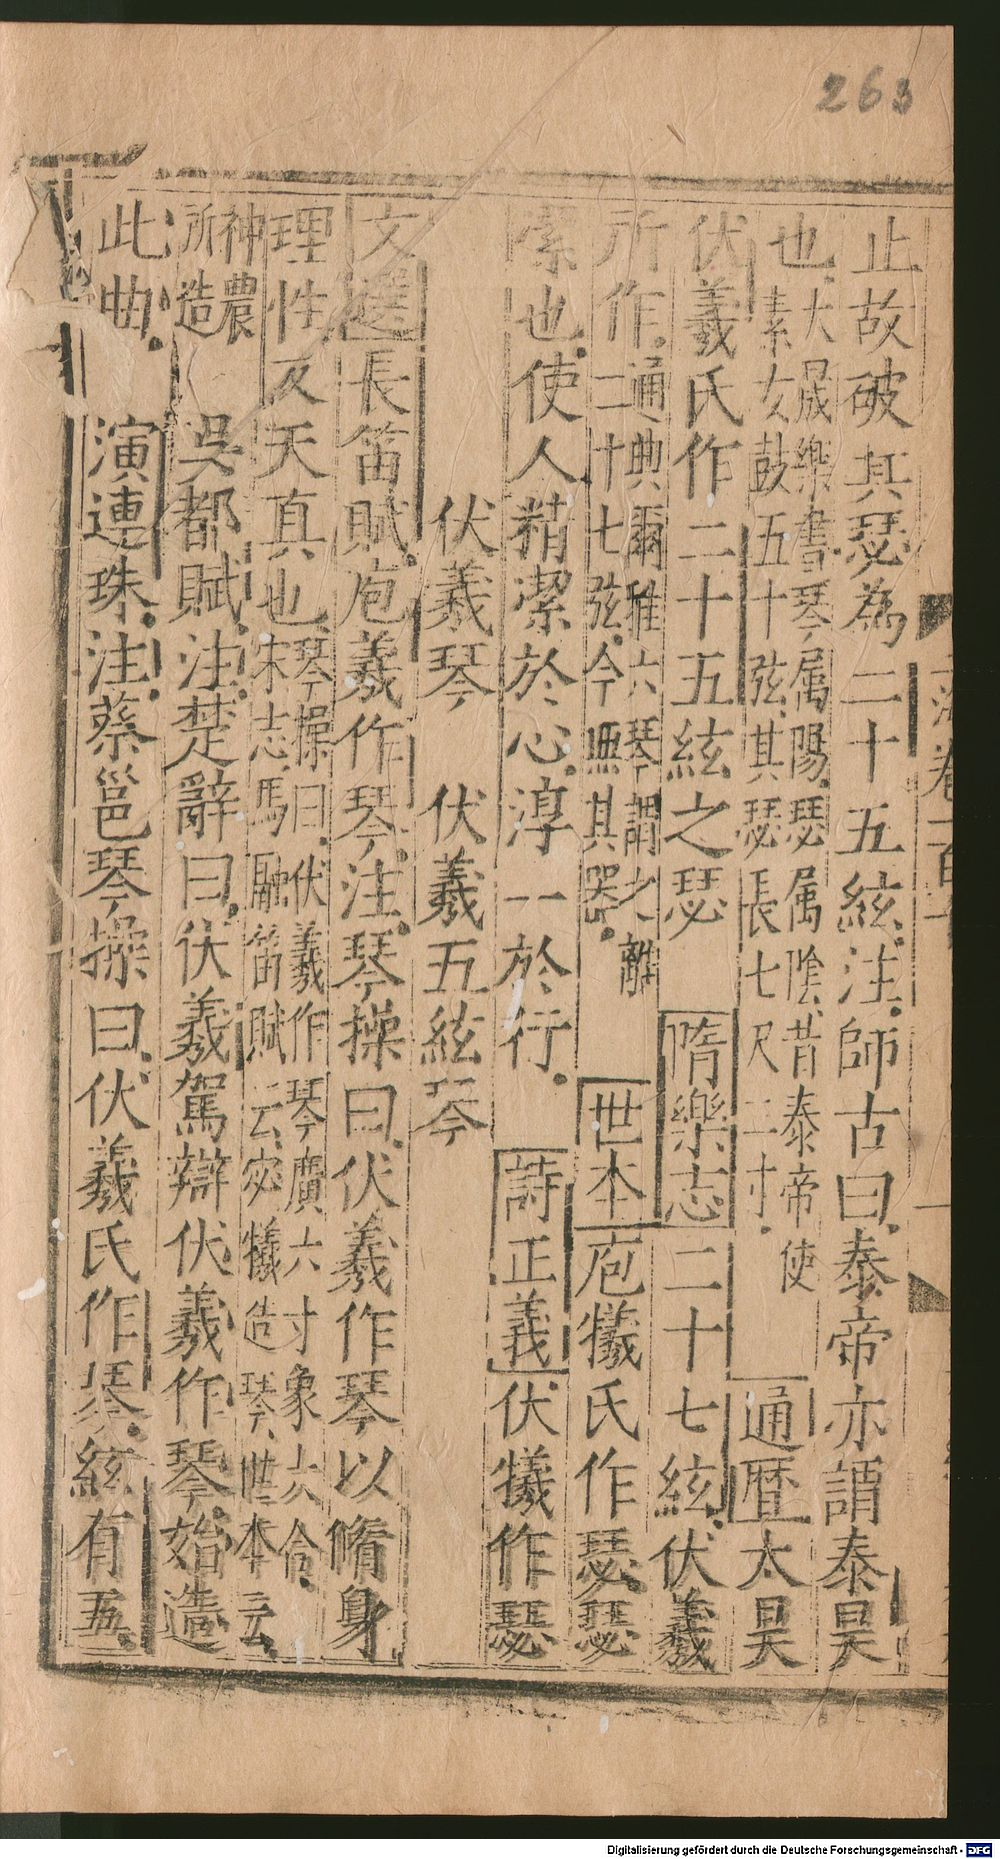 263
海卷一百十
止故破其瑟為二十五絃注師古曰泰帝亦謂泰昊
也大晟樂書琴属陽瑟属陰昔泰帝使素女鼓五十弦其瑟長七尺二寸通曆太昊
伏羲氏作二十五絃之瑟隋樂志二十七絃伏羲
所作通典爾雅六琴謂之離二十七弦今無其器世本庖犧氏作瑟瑟
潔也使人精潔於心淳一於行詩正義伏犧作瑟
伏羲琴 伏羲五絃琴
文選長笛賦庖羲作琴注琴操曰伏羲作琴以脩身
理性反天真也琴操曰伏羲作琴廣六寸象六合宋志馬融笛賦云宓犧造琴世本云
神農所造吳都賦注楚辭曰伏羲駕辯伏羲作琴始造
此曲 演連珠注蔡邕琴操曰伏羲氏作琴絃有五
Digitalisierung gefördert durch die Deutsche Forschungsgemeinschaft - DFG